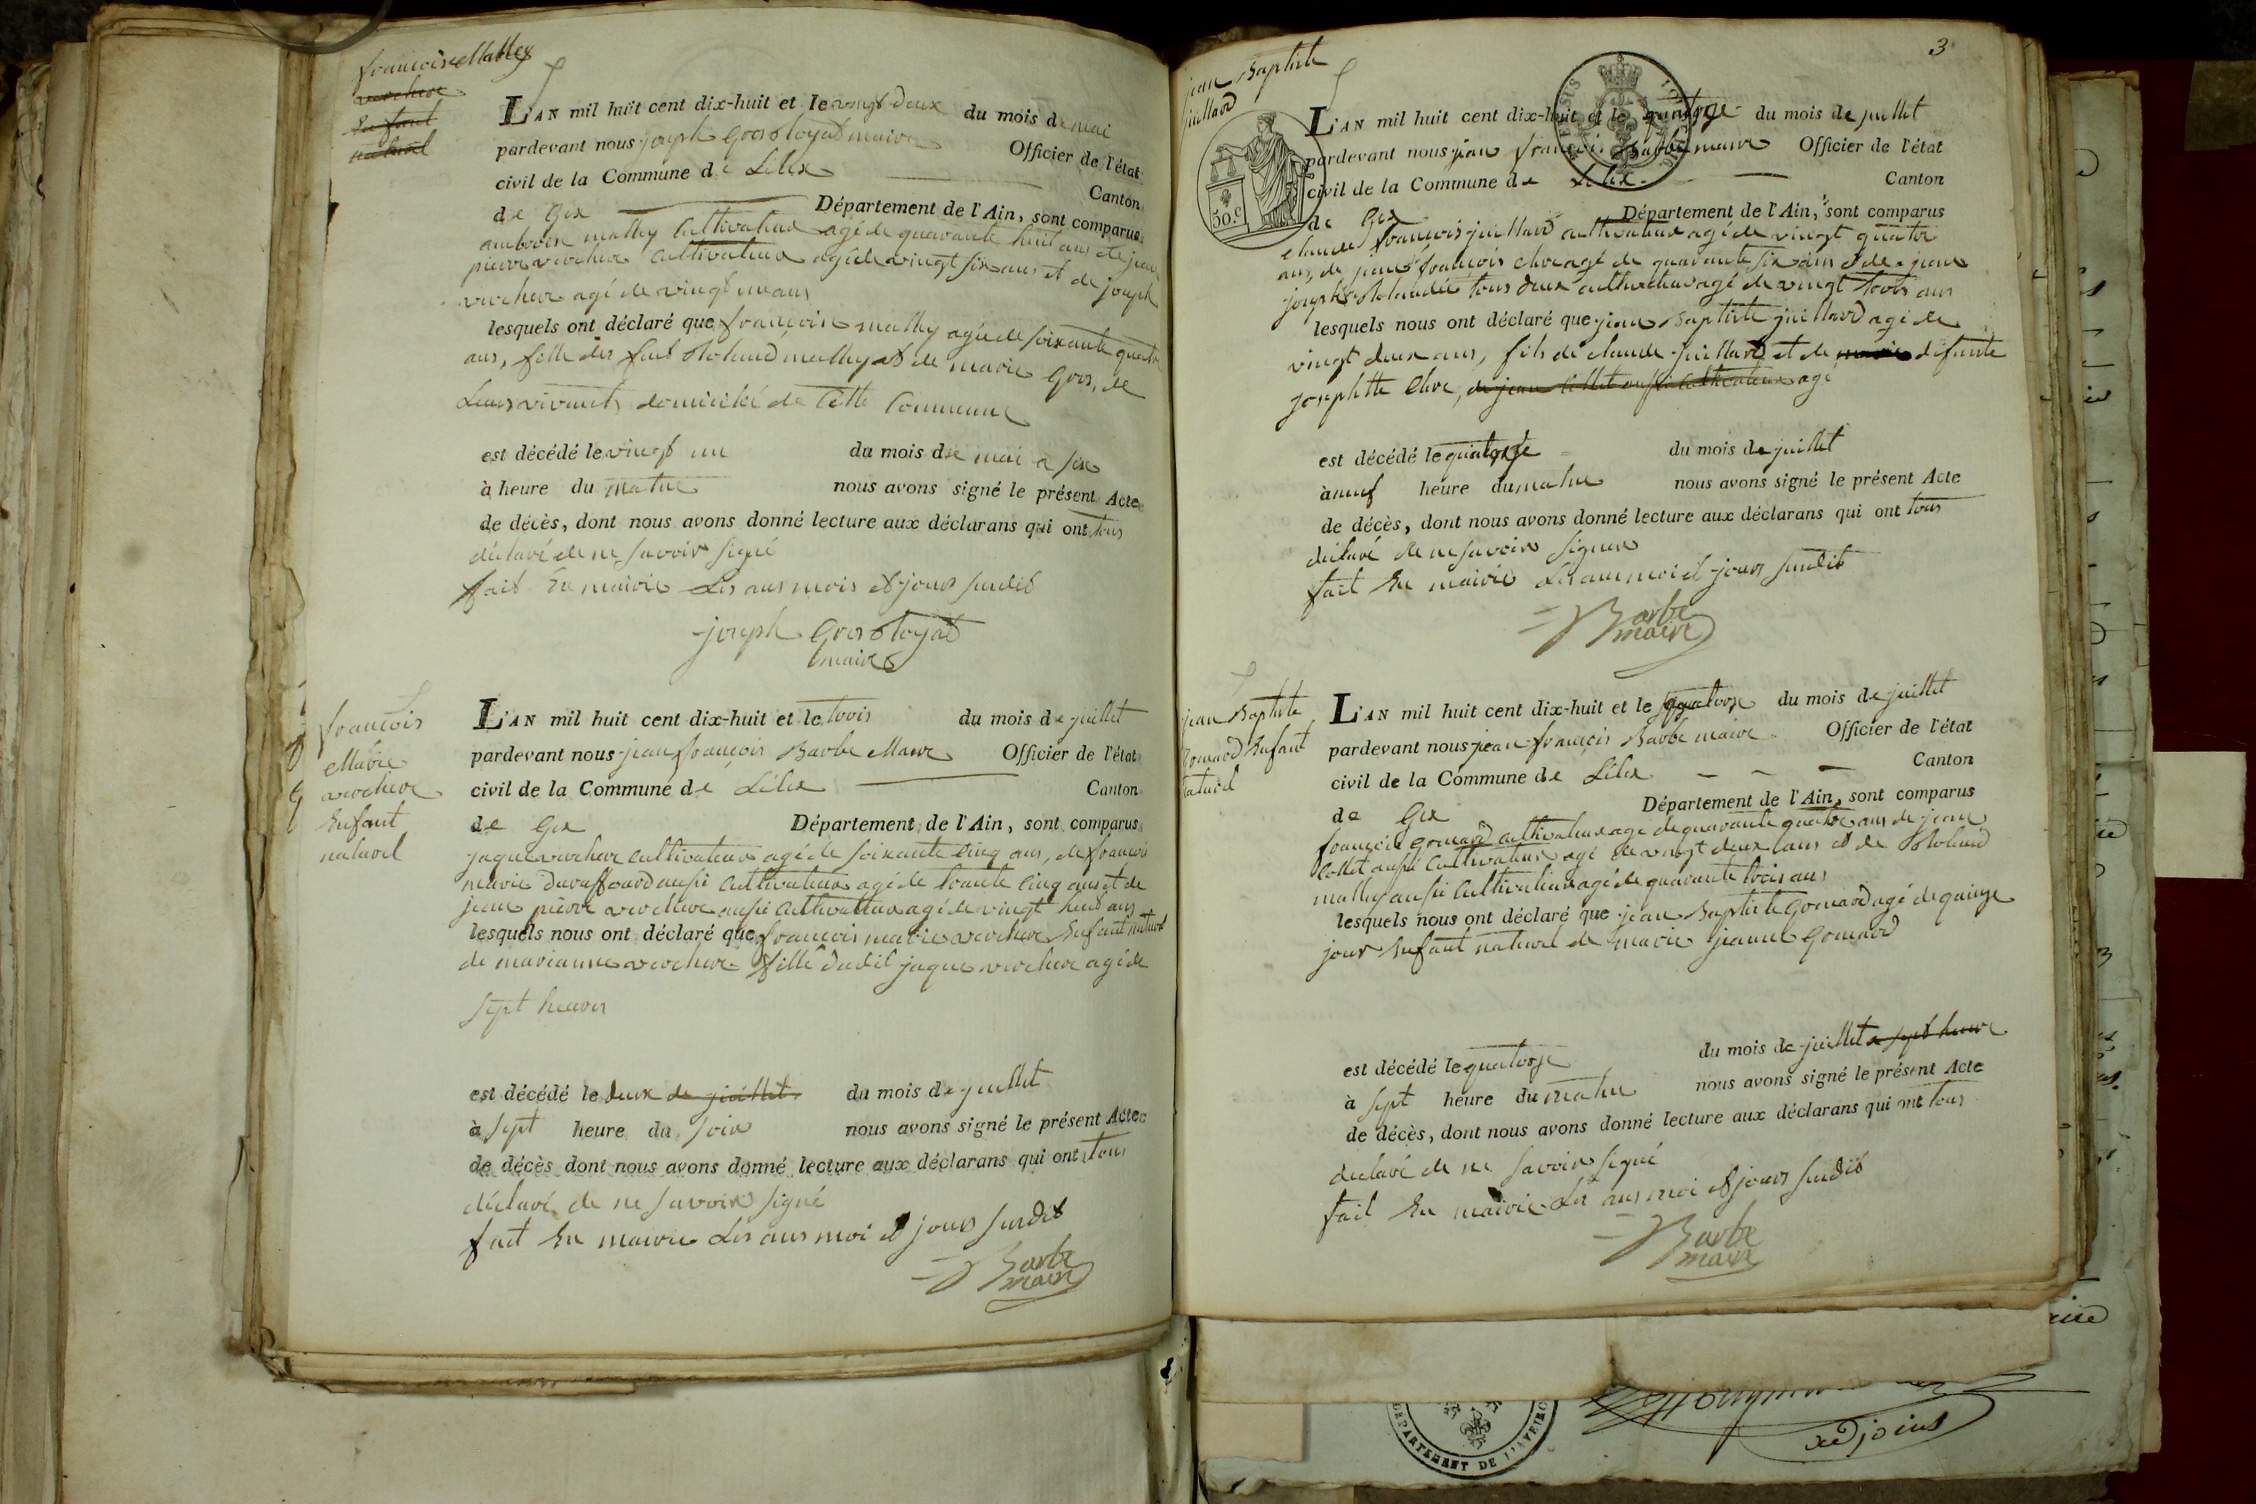 françoise Mathey
verchere
Enfant
naturel
L'AN mil huit cent dix-huit et le vingt deux du mois de mai
pardevant nous joseph Grosroyat maire Officier de l'état
civil de la Commune de Lélex Canton
de Gex Département de l'Ain, sont comparus
ambroise mathey Cultivateur agé de quarante huit ans de jean
pierre verchere Cultivateur agé de vingt six ans et de joseph
verchere agé de vingt un ans
lesquels ont déclaré que françoise mathey agée de soixante quatre
ans, fille des fut Roland mathey et de marie Gros, de
Leurs vivants domicilié de Cette Commune
est décédé le vingt un du mois de mai a six
à heure du matin nous avons signé le présent Acte
de décès, dont nous avons donné lecture aux déclarans qui ont tous
déclaré de ne savoir signé
fait En mairie Les ans mois et jours susdit
joseph Grosroyat
maire
françois
Marie
verchere
Enfant
naturel
L'AN mil huit cent dix-huit et le trois du mois de juillet
pardevant nous jean françois Barbe Maire Officier de l'état
civil de la Commune de Lélex Canton
de Gex Département de l'Ain, sont comparus
jaque verchere cultivateur agé de soixante Cinq ans, de françois
marie Duraffourd aussi Cultivateur agé de trante Cinq ans et de
jean pierre verchere aussi Cultivateur agé de vingt huit ans
lesquels nous ont déclaré que françois marie verchere Enfant naturel
de marianne verchere fille dudit jaque verchere agé de
sept heures
est décédé le deux de juillet du mois de juillet
à sept heure du soir nous avons signé le présent Acte
de décès dont nous avons donné lecture aux déclarans qui ont tous
déclaré de ne savoir signé
fait En mairie Les ans moi et jours susdit
Barbe
maire
3
jean Baptiste
juillard
50.c
L'AN mil huit cent dix-huit et le quatorze du mois de juillet
pardevant nous jean françois Barbe maire Officier de l'état
civil de la Commune de Lélex Canton
de Gex Département de l'Ain, sont comparus
claude françois juillard cultivateur agé de vingt quatre
ans, de jean françois chre agé de quarante six ans et de jean
joseph Rolandet tous deux cultivateur agé de vingt trois ans
lesquels nous ont déclaré que jean Baptiste juillard agé de
vingt deux ans, fils de claude juillard et de marie défunte
josephtte Chre, de jean Collet aussi Cultivateur agé
est décédé le quatorze du mois de juillet
à neuf heure du matin nous avons signé le présent Acte
de décès, dont nous avons donné lecture aux déclarans qui ont tous
déclaré de ne savoir signer
fait En mairie Les ans moi et jours susdit
Barbe
maire
jean Baptiste
Gomard Enfant
naturel
L'AN mil huit cent dix-huit et le quatorze du mois de juillet
pardevant nous jean françois Barbe maire Officier de l'état
civil de la Commune de Lélex Canton
de Gex Département de l'Ain, sont comparus
françois Gomard cultivateur agé de quarante quatre ans de jean
Collet aussi Cultivateur agé de vingt deux ans et de Roland
mathey aussi Cultivateur agé de quarante trois ans
lesquels nous ont déclaré que jean Baptiste Gomard agé de quinze
jour Enfant naturel de marie jeanne Gomard
est décédé le quatorze du mois de juillet a sept heure
à sept heure du matin nous avons signé le présent Acte
de décès, dont nous avons donné lecture aux déclarans qui ont tous
déclaré de ne savoir signé
fait En mairie Les ans moi et jours susdit
Barbe
maire
DEPARTEMENT DE L'AVEYRON
adjoint